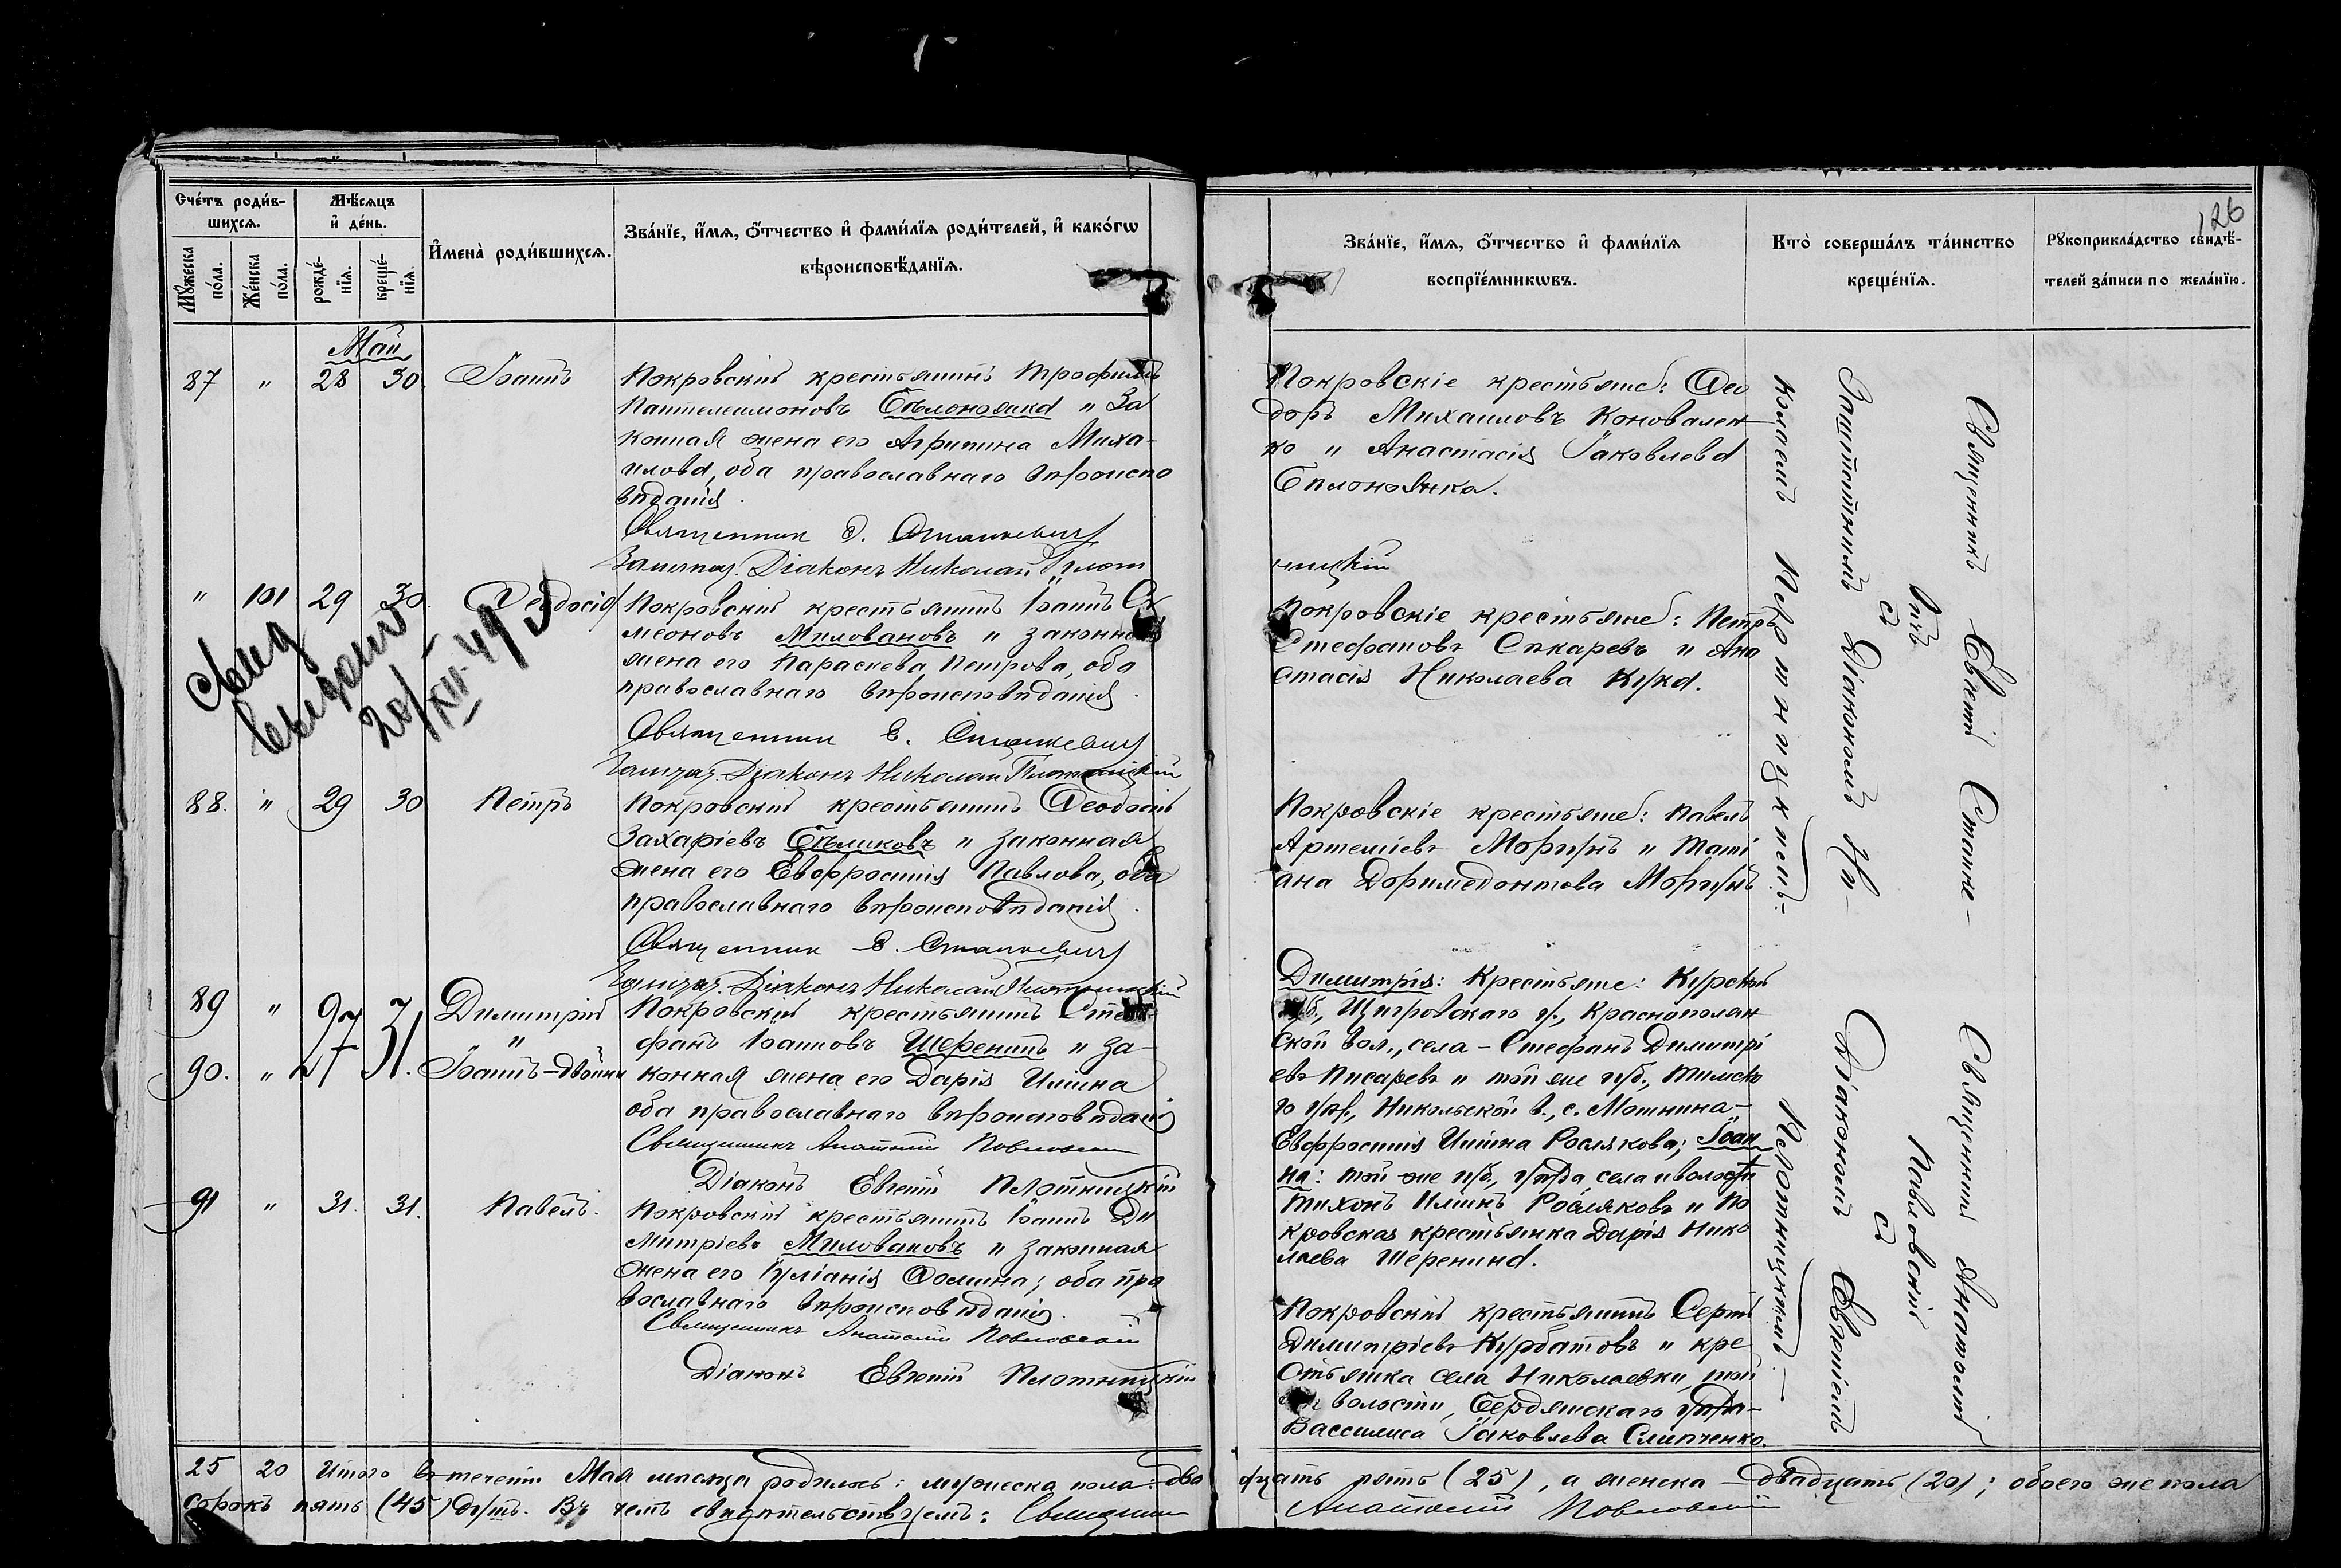 126
Счéтъ родив-
шихсѧ.
Мѣсѧцъ
и дéнь.
Мꙋжеска пóла.
Жéнска пóла.
рождé-
нїѧ.
крещé-
нїѧ.
Именà родившихсѧ.
Звáнїе, имѧ, ѻтчество и фамилїѧ родителей, и какóгѡ
вѣроисповѣданїѧ.
Звáнїе, имѧ, ѻтчество и фамилїѧ
воспрїéмникѡвъ.
Ктò совершáлъ тáинство
крещéнїѧ.
Рꙋкоприклáдство свидѣ-
телей зáписи по желáнїю.
Май
87 " 28 30. Іоаннъ
Покровскій крестьянинъ Трофимъ
Пантелеимоновъ Бѣлоножка и за
конная жена его Агрипина Миха-
илова, оба православнаго вѣроиспо
вѣданія.
Священник Е. Станкевич
Заштат. Діаконъ Николай Плот
ницкій
Покровскіе крестьяне: Ѳео
доръ Михаиловъ Коновален
ко и Анастасія Іаковлева
Бѣлоножка.
" 101 29 30. Ѳеодосія
Покровскій крестьянинъ Іоаннъ Си
меоновъ Миловановъ и законная
жена его Параскева Петрова, оба
православнаго вѣроисповѣданія.
Священник Е. Станкевич
Заштат. Діаконъ Николай Плотницкій
Покровскіе крестьяне: Петръ
Стефановъ Секаревъ и Ана
стасія Николаева
свид
выдано
20/XII-49
88. " 29 30 Петръ
Покровскій крестьянинъ Ѳеодосій
Захаріевъ Бѣликовъ и законная
жена его Евфросинія Павлова, оба
православнаго вѣроисповѣданія.
Священник Е. Станкевич
Заштат. Діаконъ Николай Плотницкій
Покровскіе крестьяне: Павелъ
Артеміевъ Моргунъ и Таті
ана Доримедонтова Моргунъ
89 " 27 31. Димитрій
"
90. " Іоаннъ-двойни
Покровскій крестьянинъ Сте
фанъ Іоанновъ Шеренинъ и за-
конная жена его Дарія Иліина
оба православнаго вѣроисповѣданія
Священникъ Анатолій Павловскій
Діаконъ Евгеній Плотницкій
Димитрія: Крестьяне: Курской
губ., Щигровскаго у., Краснополян
ской вол., села - Стефанъ Димитрі
евъ Писаревъ и той же губ., Тимска
го у., Никольской в., с. Мошнина-
Евфросинія Иліина Рослякова; Іоан
на: той же губ., уѣзда села и волости
Тихонъ Илiинъ Росляковъ и По
кровская крестьянка Дарія Нико
лаева Шеренина.
91 " 31. 31. Павелъ.
Покровскій крестьянинъ Іоаннъ Ди
митріевъ Миловановъ и законная
жена его Іуліанія Ѳомина; оба пра
вославнаго вѣроисповѣданія.
Священникъ Анатолій Павловскій
Діаконъ Евгеній Плотницкій
Покровскій крестьянинъ Сергій
Димитріевъ Курбатовъ и кре
стьянка села Николаевки, той
же волости, Бердянскаго уѣзда-
Вассилиса Іаковлева Слипченко.
Священникъ Евгеній Станке-
вичъ
съ
Заштатнымъ Діакономъ Ни-
колаемъ Плотницкимъ.
Священникъ Анатолій
Павловскій
съ
Діакономъ Евгеніемъ
Плотницкимъ.
25 20 Итого въ теченіи Мая мѣсяца родилось: мужеска пола - два
дцать пять (25), а женска - двадцать (20); обоего же пола
сорокъ пять (45) душъ. Въ чемъ свидѣтельствуемъ: Священник
Анатолій Павловскій